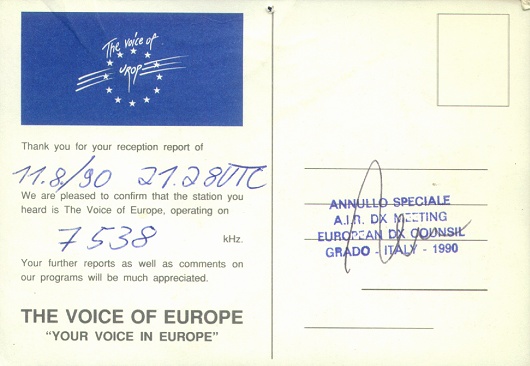 The Voice of
EUROPE
Thank you for your reception report of
11.8/90 21.28 UTC
We are pleased to confirm that the station you
heard is The Voice of Europe, operating on
7538 kHz.
Your further reports as well as comments on
our programs will be much appreciated.
THE VOICE OF EUROPE
“YOUR VOICE IN EUROPE”
ANNULLO SPECIALE
A.I.R. DX MEETING
EUROPEAN DX COUNSIL
GRADO - ITALY - 1990